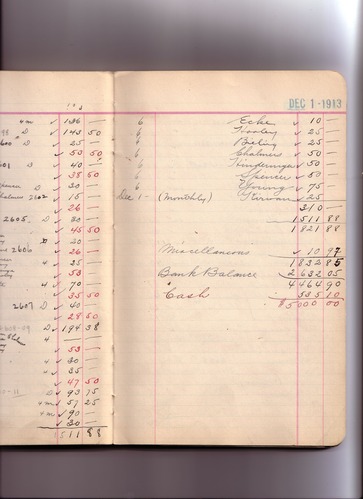 DEC 1 - 1913
4m ✓ 136 —
D ✓ 143 50
600 D ✓ 25 —
✓ 50 50
601 D ✓ 40 —
✓ 38 50
D ✓ 30 —
2602 ✓ 15 —
✓ 26 —
2605. D ✓ 30 —
✓ 45 50
20 —
2606 ✓ 26 —
✓ 35 —
✓ 50 —
✓ 70 —
✓ 35 50
2607 D ✓ 40 —
✓ 28 50
D ✓ 194 38
✓ 53 —
✓ 30 —
✓ 35 —
✓ 47 50
D ✓ 93 75
4m ✓ 57 25
4m ✓ 90 —
✓ 30 —
1511 88
6 Ecke ✓ 10 —
6 Tooley ✓ 25 —
Bieling ✓ 25 —
6 Chalmers ✓ 50 —
✓ 50 —
Spencer ✓ 50 —
6 Young ✓ 75 —
Dec 1 - (Monthly) Kirwan ✓ 25 —
310 —
1511 88
1821 88
Miscellaneous ✓ 10 97
1832 85
Bank Balance 2632 05
4464 90
" Cash 535 10
$5000 00